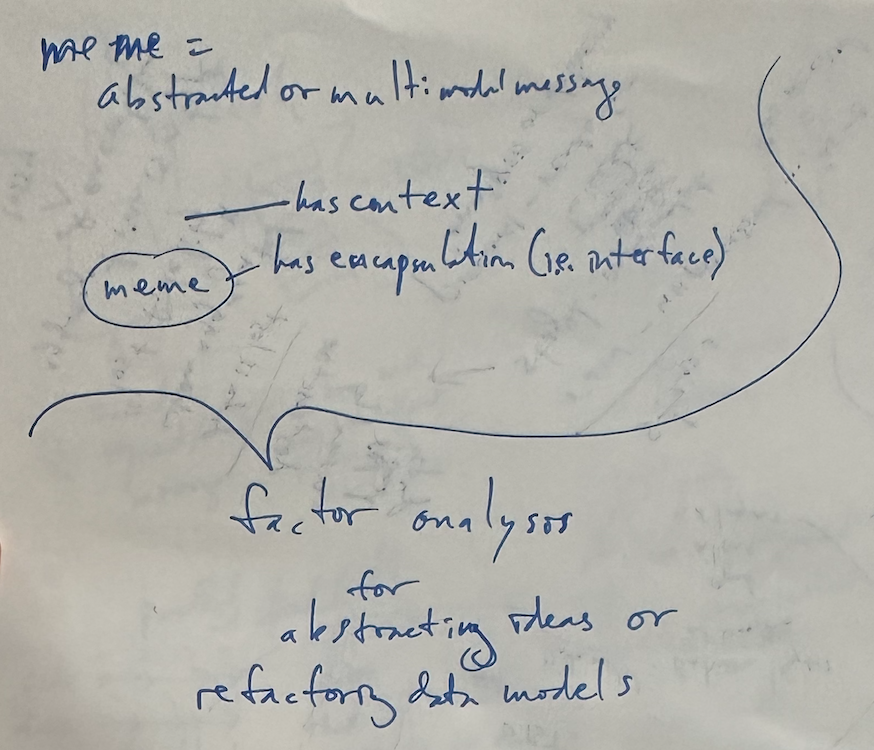 meme =
abstracted or multimodal message
has context
has encapsulation (i.e. interface)
meme
factor analysis
for
abstracting ideas or
refactoring data models